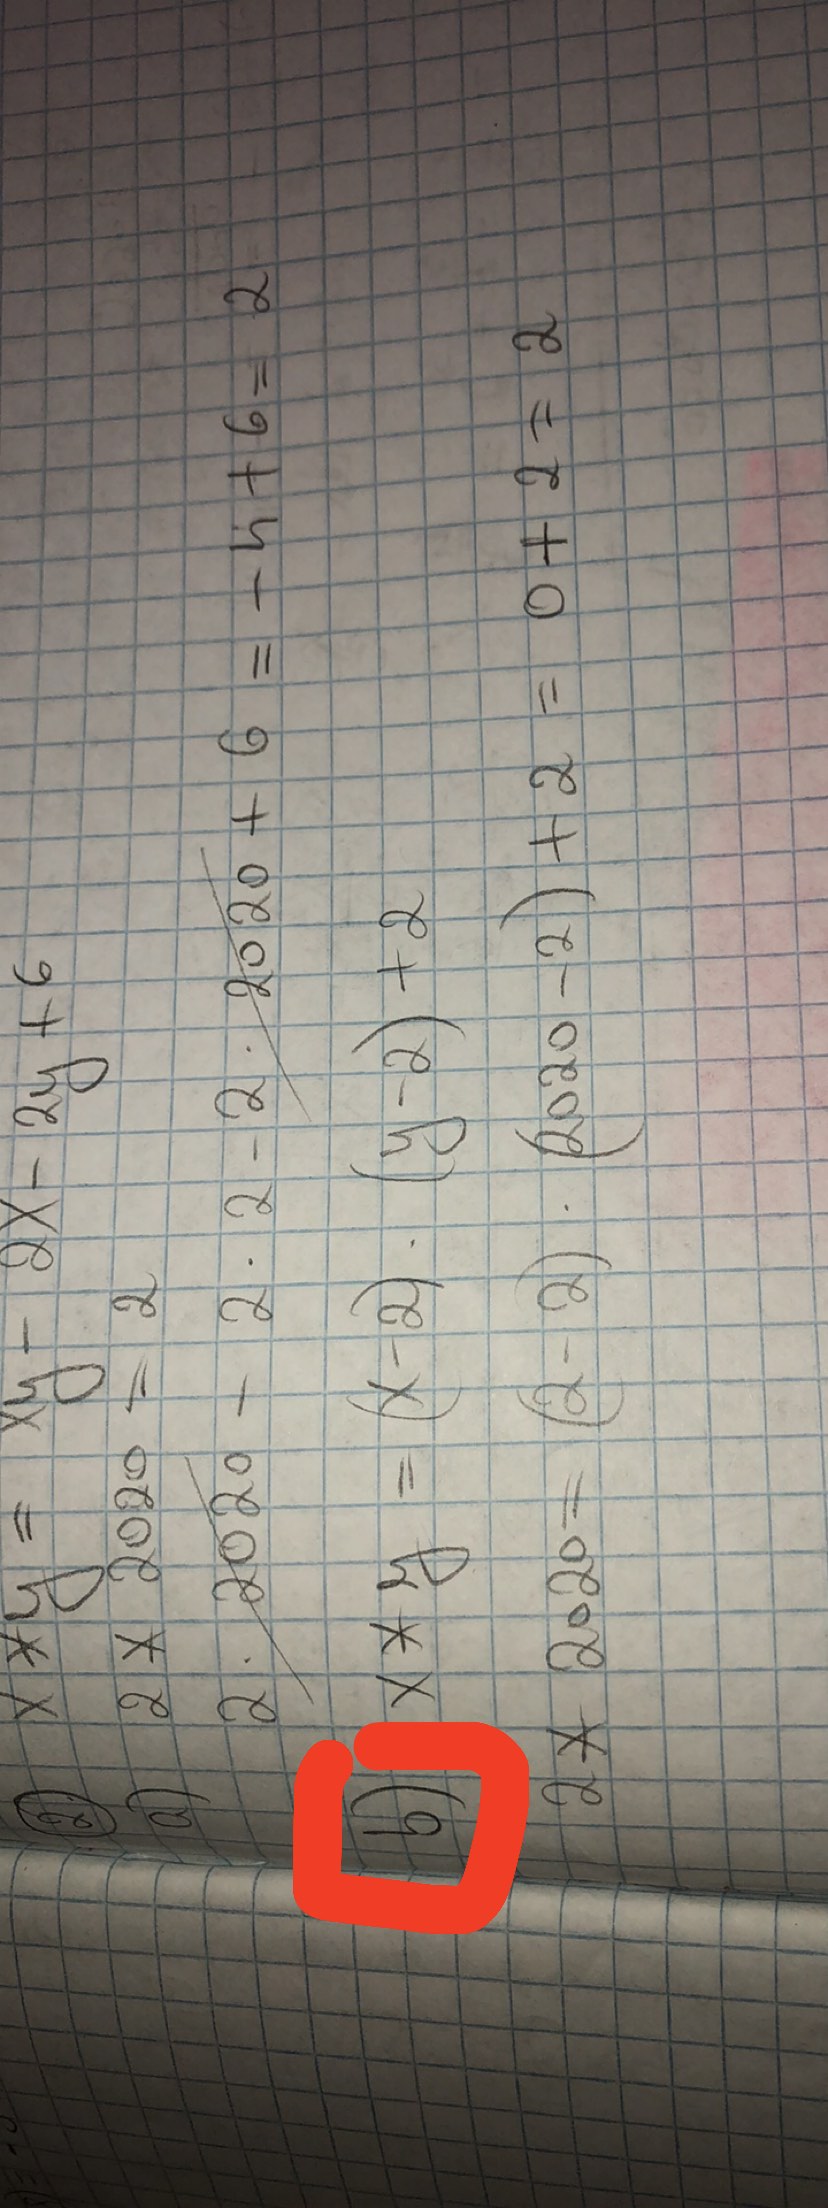 2. x * y = xy - 2x - 2y + 6
a) 2 * 2020 = 2
2 · 2020 - 2 · 2 - 2 · 2020 + 6 = -4 + 6 = 2
b) x * y = (x - 2) · (y - 2) + 2
2 * 2020 = (2 - 2) · (2020 - 2) + 2 = 0 + 2 = 2